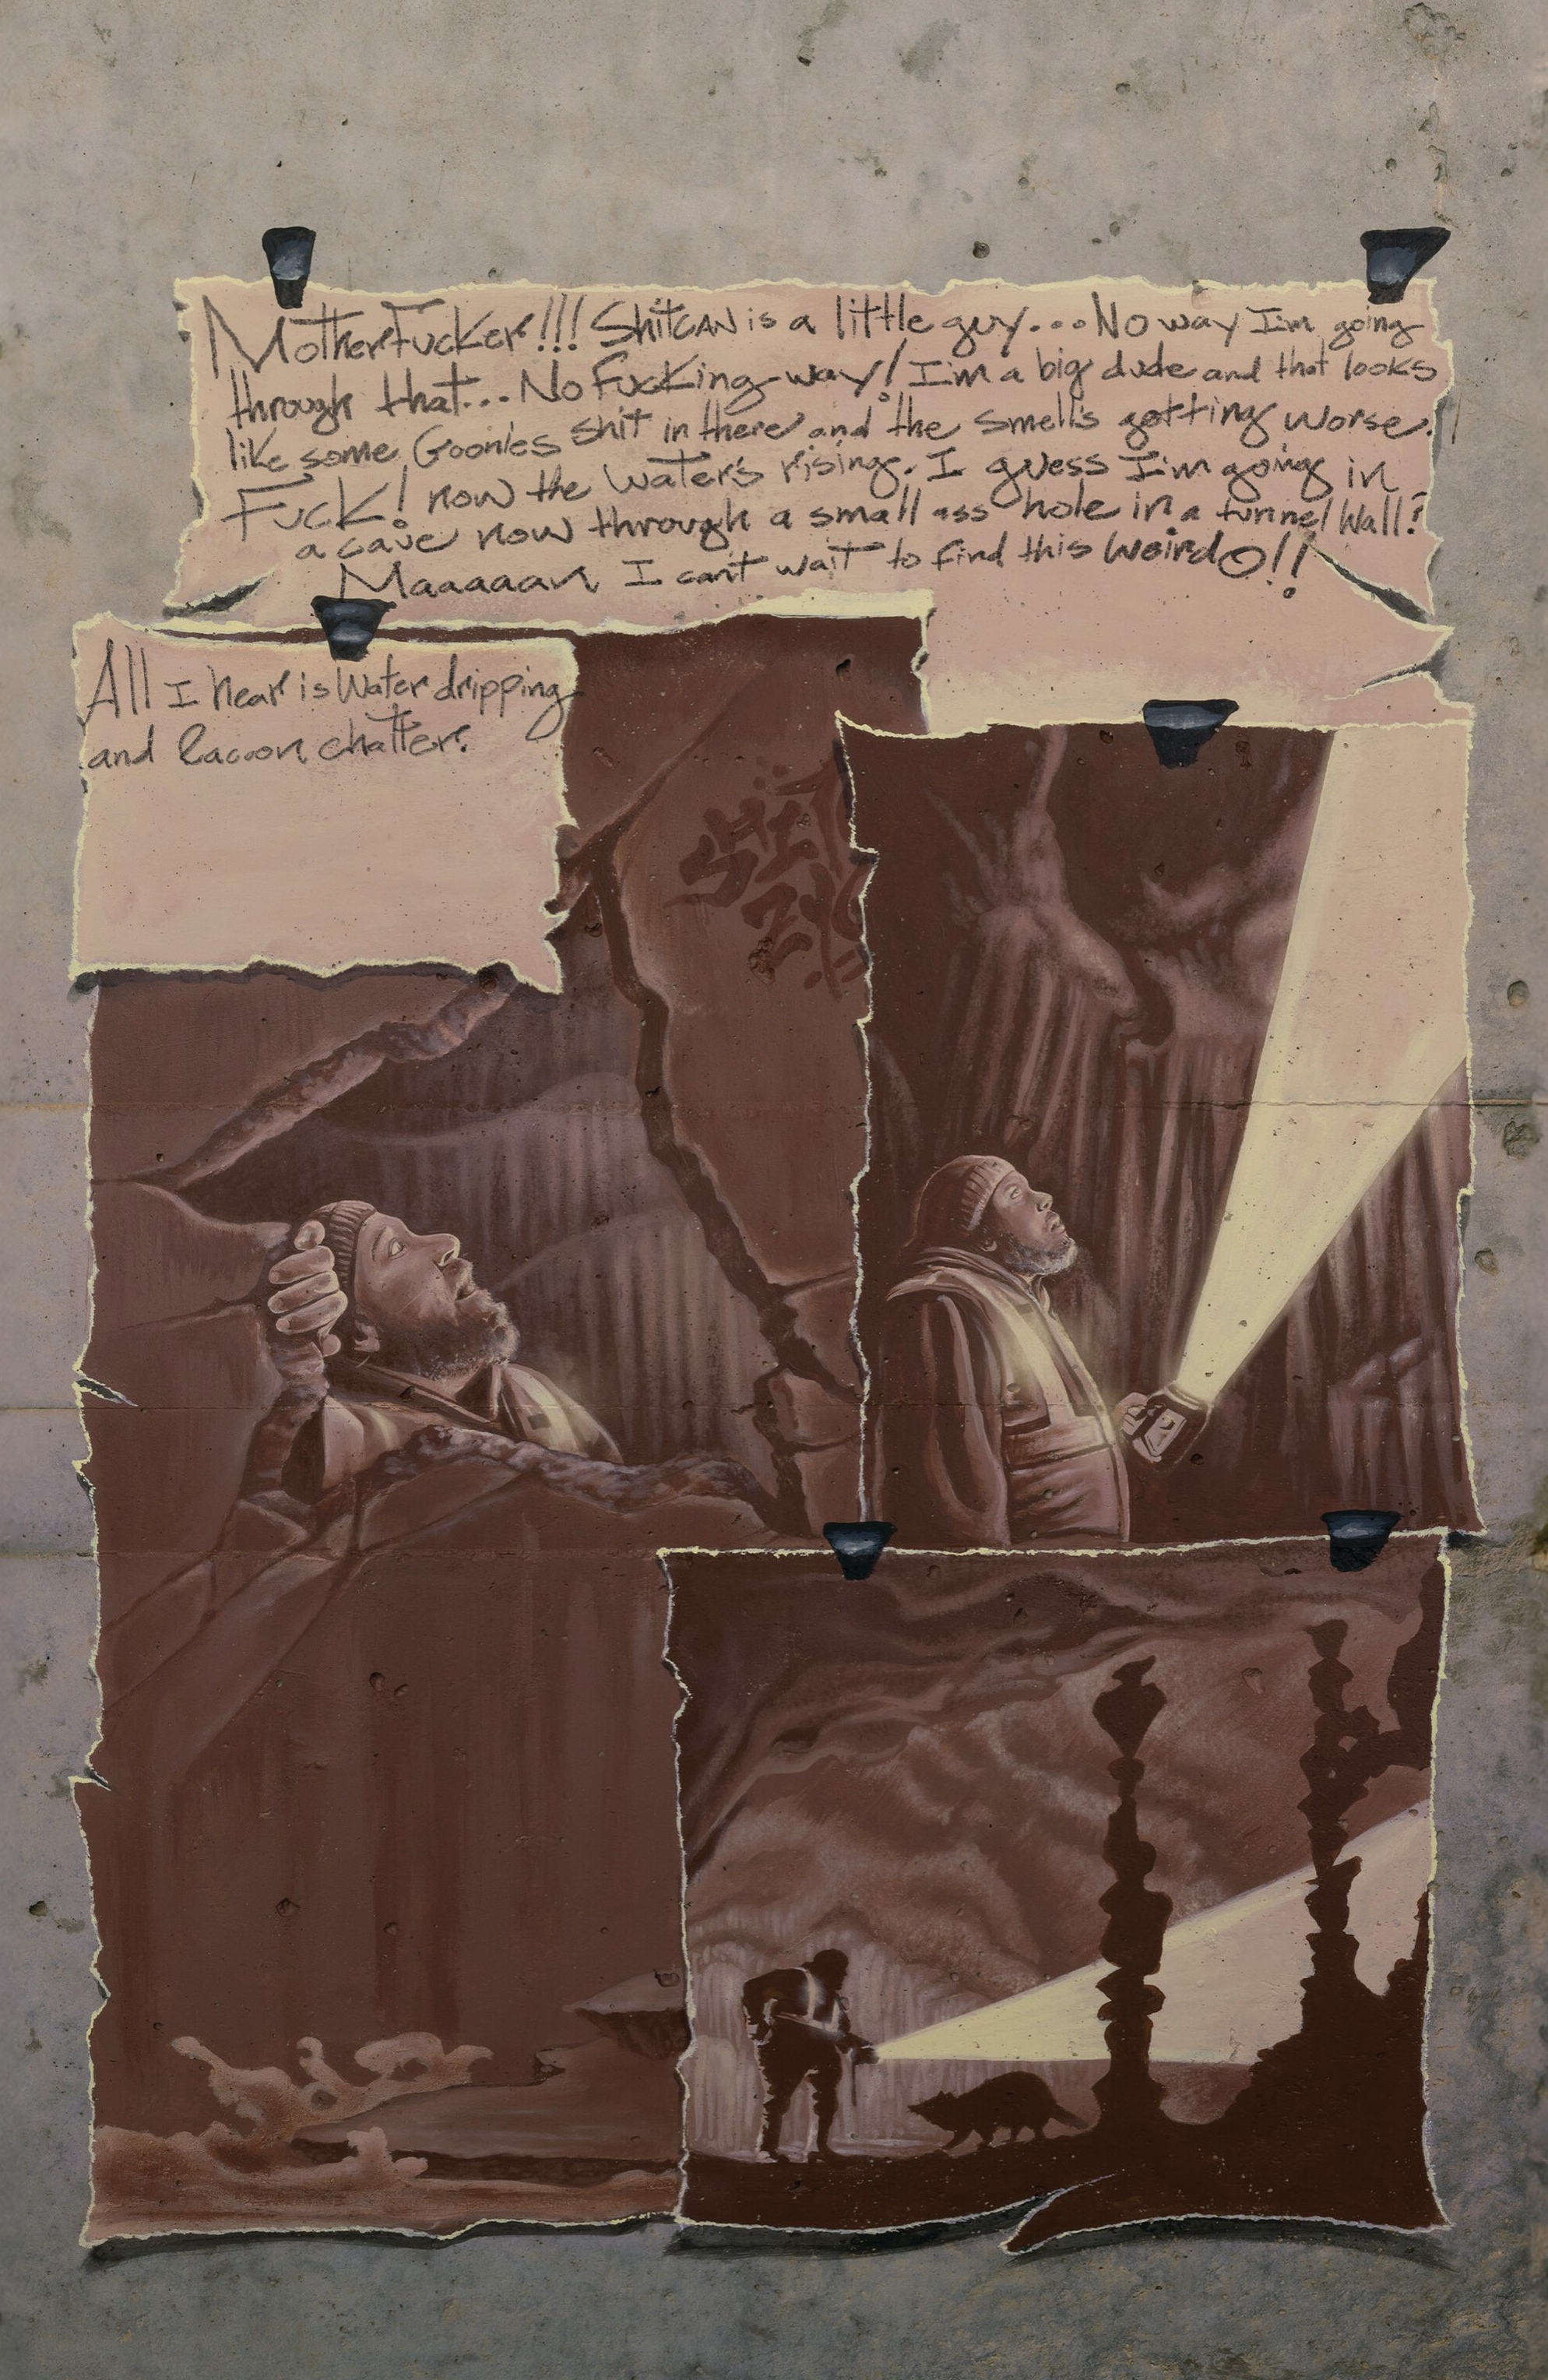 MotherFucker!!! Shitcan is a little guy... No way I'm going
through that... No Fucking way! I'm a big dude and that looks
like some Goonies shit in there and the smell's getting worse.
Fuck! now the water's rising. I guess I'm going in
a cave now through a small ass hole in a tunnel wall?
Maaaaan I can't wait to find this Weirdo!!
All I hear is Water dripping
and Racoon chatter.